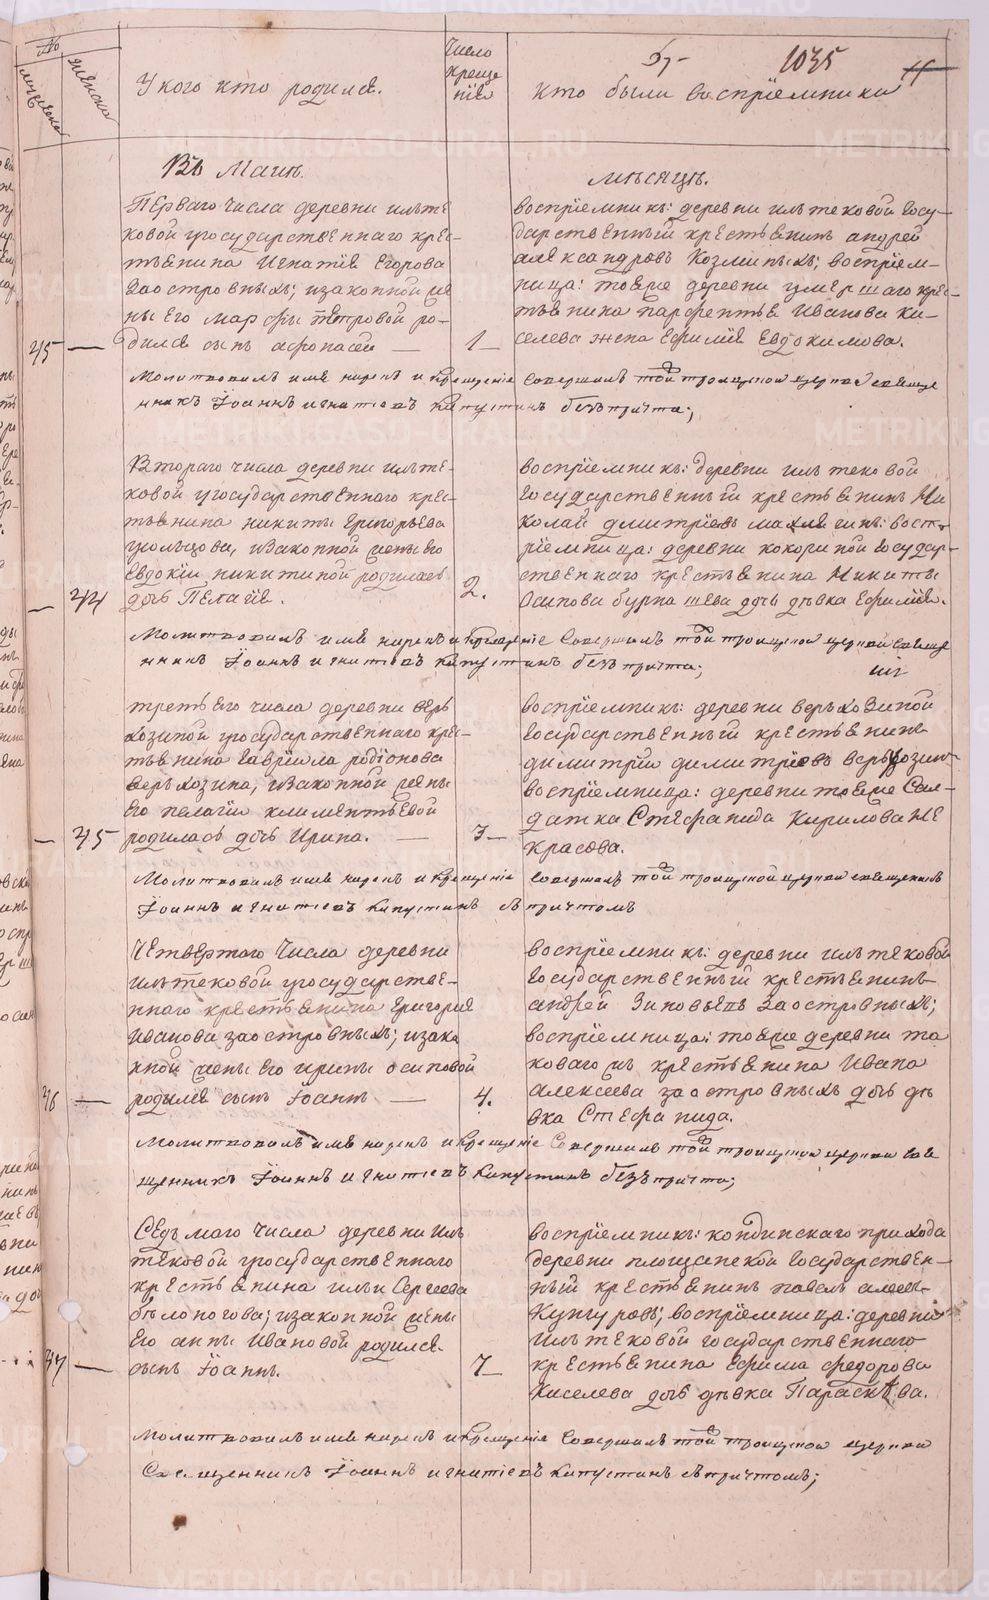 №
мужеска
женска
У кого кто родился.
Число
креще
нія
1035
11
кто были воспріемники
Въ Маиѣ
мѣсяцѣ.
Перваго числа деревни ильте
ковой угосударственнаго крес-
тьянина Игнатія Егорова
Заостровныхъ; изаконной же
ны его марфы Петровой ро-
дился сынъ афонасей
45
1
воспріемникъ: деревни ильтековой Госу-
дарственный крестьянинъ андрей
александровъ Козминыхъ; воспріем-
ница: тояже деревни умершаго крес-
тьянина парфентья Иванова Ки-
селева жена Ефимія Евдокимова.
Молитвовалъ имя нарекъ и крещеніе совершалъ той троицкой церкви свяще
нникъ Іоаннъ игнатіевъ капустинъ безъ причта;
Втораго числа деревни ильте-
ковой угосударственнаго крес-
тьянина никиты Григорьева
уюльцова, изаконной жены его
Евдокіи никитиной родилась
дочь Пелагія.
44
2.
воспріемникъ: деревни ильтековой
Государственный крестьянинъ Ни
колай дмитріевъ восп-
ріемница: деревни кокориной Государ-
ственнаго крестьянина Никиты
Осипова бурнашева дочь дѣвка Ефимія.
Молитвовалъ имя нарекъ и крещеніе совершалъ той троицкой церкви свяще
нникъ Іоаннъ игнатіевъ капустинъ безъ причта;
третьего числа деревни верь
хозиной угосударственнаго крес-
тьянина Гавріила родіонова
верьхозина, изаконной жены
его пелагіи климентьевой
родилась дочь Ирина.
45
3
воспріемникъ: деревни верьхозиной
Государственный крестьянинъ
димитрій димитріевъ верьхозинъ
воспріемница: деревни тояже Сол-
датка Стефанида Кирилова Не
красова.
Молитвовалъ имя нарекъ и крещеніе совершалъ той троицкой церкви священикъ
Іоаннъ игнатіевъ капустинъ съ причтомъ
Четвертого Числа деревни
ильтековой угосударстве-
ннаго крестьянина Григорія
Иванова заостровныхъ; изако
нной жены его ирины осиповой
родился сынъ Іоаннъ
46
4.
воспріемникъ: деревни ильтековой
Государственный крестьянинъ
андрей Зиновьевъ Заостровныхъ;
воспріемница: тояже деревни та
коваго жъ крестьянина Ивана
Алексеева заостровныхъ дочь дѣ
вка Стефанида.
Молитвовалъ имя нарекъ и крещеніе совершалъ той троицкой церкви свя
щенникъ Іоаннъ игнатіевъ капустинъ безъ причта;
Седьмаго числа деревни иль
тековой угосударственнаго
крестьянина ильи Сергеева
бѣлоногова; изаконной жены
его анны Ивановой родился
сынъ Іоаннъ.
47
7
воспріемникъ: кондинскаго прихода
деревни площанской Государствен-
ный крестьянинъ павелъ
Кунгуровъ; воспріемница: деревни
Ильтековой государственнаго
крестьянина Ефима федорова
Киселева дочь дѣвка Параскева.
Молитвовалъ имя нарекъ и крещеніе совершалъ той троицкой церкви
Священникъ Іоаннъ игнатіевъ капустинъ съ причтомъ;
METRIKI.GASO-URAL.RU